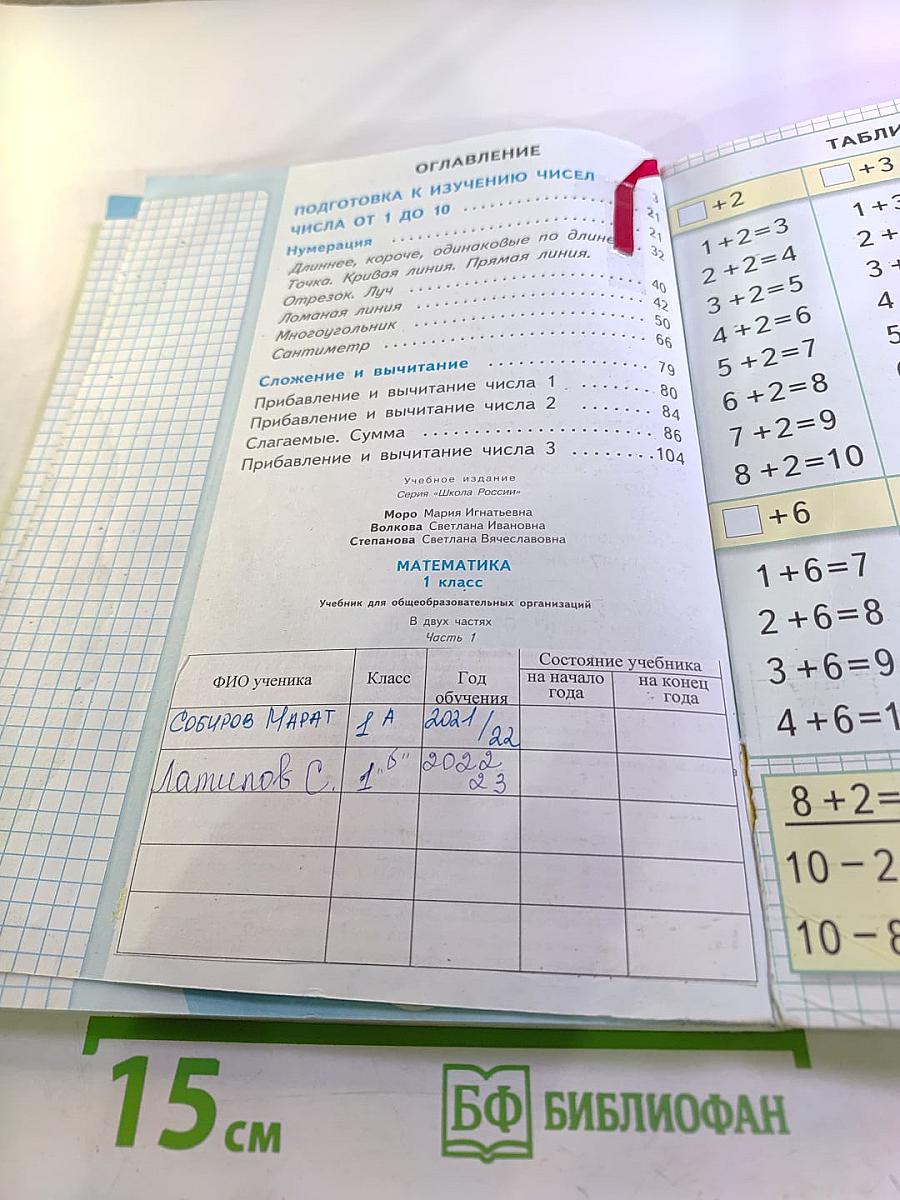 ОГЛАВЛЕНИЕ
ПОДГОТОВКА К ИЗУЧЕНИЮ ЧИСЕЛ .. 3
ЧИСЛА ОТ 1 ДО 10 .......... 21
Нумерация .......... 21
Длиннее, короче, одинаковые по длине 32
Точка. Кривая линия. Прямая линия.
Отрезок. Луч .......... 40
Ломаная линия .......... 42
Многоугольник .......... 50
Сантиметр .......... 66
Сложение и вычитание .......... 79
Прибавление и вычитание числа 1 ....... 80
Прибавление и вычитание числа 2 ....... 84
Слагаемые. Сумма .......... 86
Прибавление и вычитание числа 3 ........104
Учебное издание
Серия «Школа России»
Моро Мария Игнатьевна
Волкова Светлана Ивановна
Степанова Светлана Вячеславовна
МАТЕМАТИКА
1 класс
Учебник для общеобразовательных организаций
В двух частях
Часть 1
ФИО ученика Класс Год обучения Состояние учебника
на начало года на конец года
Собиров Марат 1 А 2021/22
Латипов С. 1 "б" 2022 23
ТАБЛИ
+2 +3
1+2=3 1+3
2+2=4 2+
3+2=5 3+
4+2=6 4
5+2=7 5
6+2=8
7+2=9
8+2=10
+6
1+6=7
2+6=8
3+6=9
4+6=1
8+2=
10-2
10-8
15 см
БФ БИБЛИОФАН